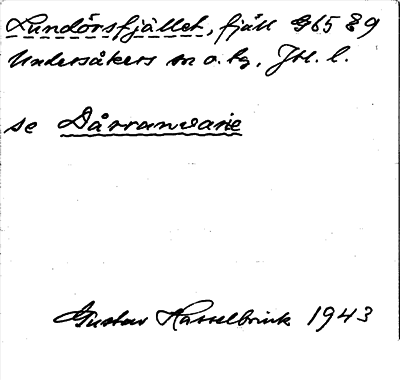 Lundörsfjället, fjäll G65 89
Undersåkers sn o. tg, Jtl. l.
se Dårranvarie
Gustav Hasselbrink 1943